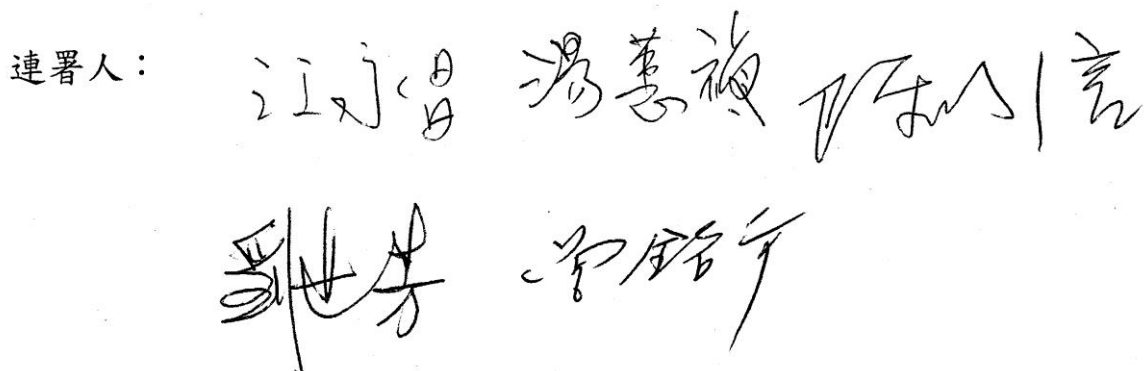 連署人： 江永昌 湯蕙禎 陳 信
劉世芳 管